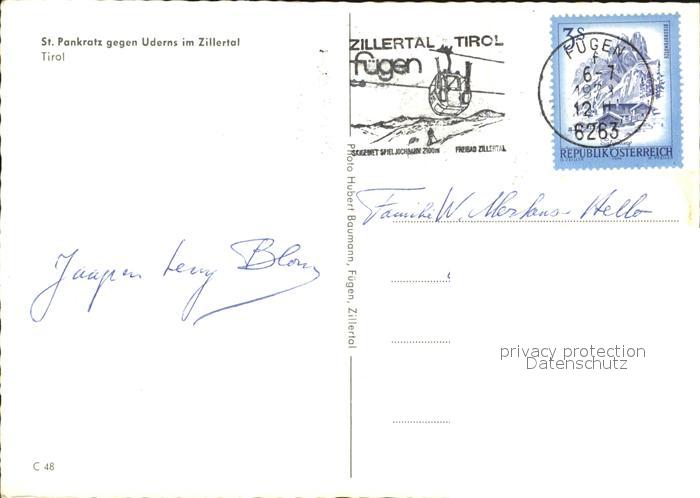 St. Pankratz gegen Uderns im Zillertal
Tirol
ZILLERTAL TIROL
fügen
SKIGEBIET SPIELJOCHBAHN 2100m FREIBAD ZILLERTAL
FÜGEN
6-7
12
6263
3S
REPUBLIK ÖSTERREICH
Photo Hubert Baumann, Fügen, Zillertal
Familie W.
Blom
privacy protection
Datenschutz
C 48